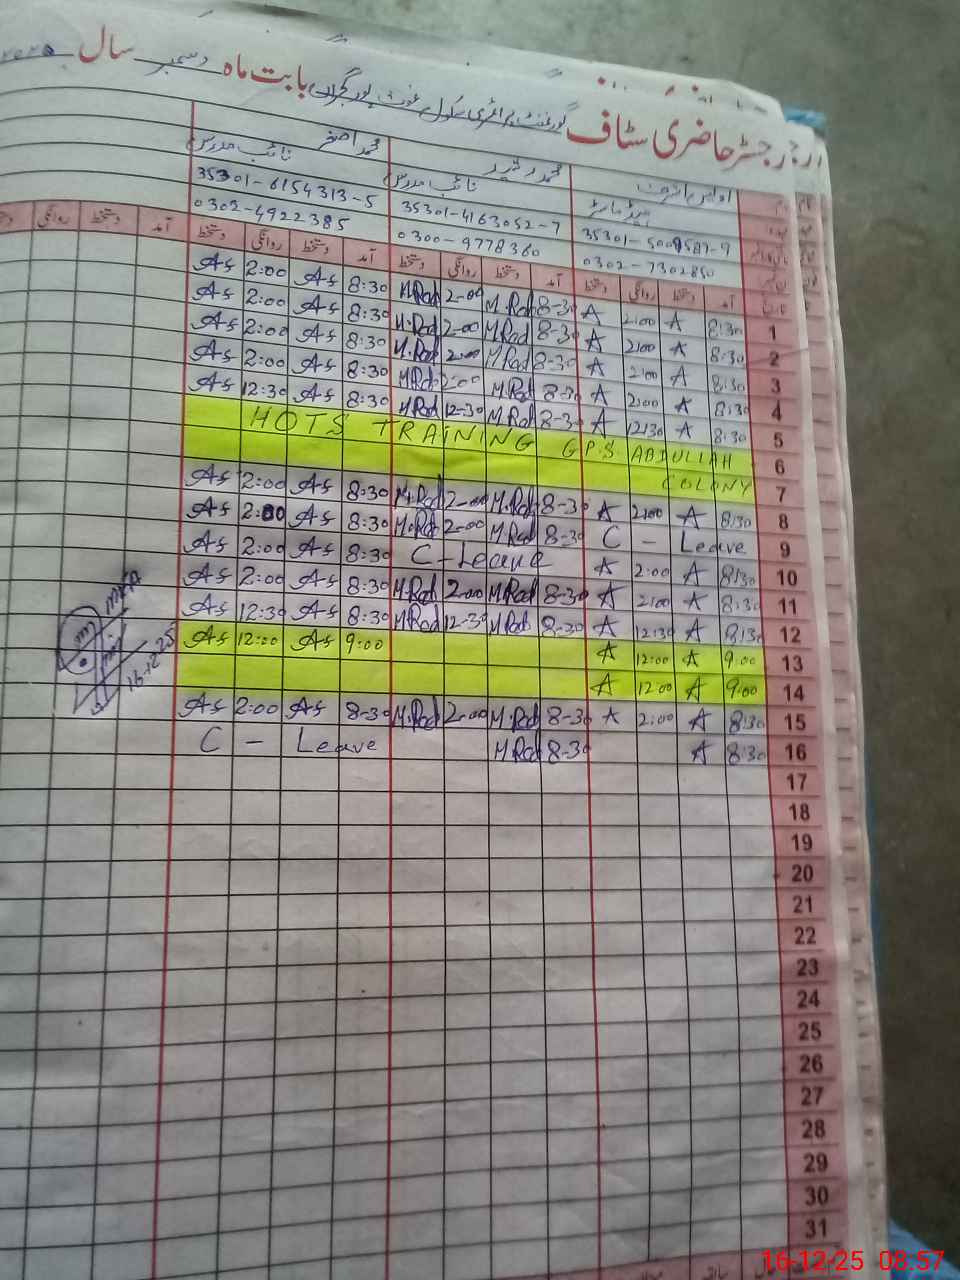 رجسٹر حاضری سٹاف گورنمنٹ پرائمری سکول غوث پور گجراں بابت ماہ دسمبر سال
محمد رشید محمد اصغر
ہیڈ ماسٹر نائب مدرس نائب مدرس
35301-4163052-7 35301-6154313-5
0302-7302850 0300-9778360 0302-4922385
آمد دستخط روانگی دستخط آمد دستخط روانگی دستخط آمد دستخط روانگی دستخط آمد دستخط روانگی
As 2:00 As 8:30 M.Rad 2-00 M.Rad 8-30 A 2:00 A 8:30 1
As 2:00 As 8:30 M.Rad 2-00 M.Rad 8-30 A 2:00 A 8:30 2
As 2:00 As 8:30 M.Rad 2-00 M.Rad 8-30 A 2:00 A 8:30 3
As 2:00 As 8:30 M.Rad 2-00 M.Rad 8-30 A 2:00 A 8:30 4
As 12:30 As 8:30 M.Rad 12-30 M.Rad 8-30 A 12:30 A 8:30 5
HOTS TRAINING G.P.S. ABDULLAH 6
COLONY 7
As 2:00 As 8:30 M.Rad 2-00 M.Rad 8-30 A 2:00 A 8:30 8
As 2:00 As 8:30 M.Rad 2-00 M.Rad 8-30 C - Leave 9
As 2:00 As 8:30 C-Leave A 2:00 A 8:30 10
As 2:00 As 8:30 M.Rad 2-00 M.Rad 8-30 A 2:00 A 8:30 11
As 12:30 As 8:30 M.Rad 12-30 M.Rad 8-30 A 12:30 A 8:30 12
As 12:00 As 9:00 A 12:00 A 9:00 13
A 12:00 A 9:00 14
As 2:00 As 8-30 M.Rad 2-00 M.Rad 8-30 A 2:00 A 8:30 15
C - Leave M.Rad 8-30 A 8:30 16
17
18
19
20
21
22
23
24
25
26
27
28
29
30
31
16-12-25
16-12-25 08.57